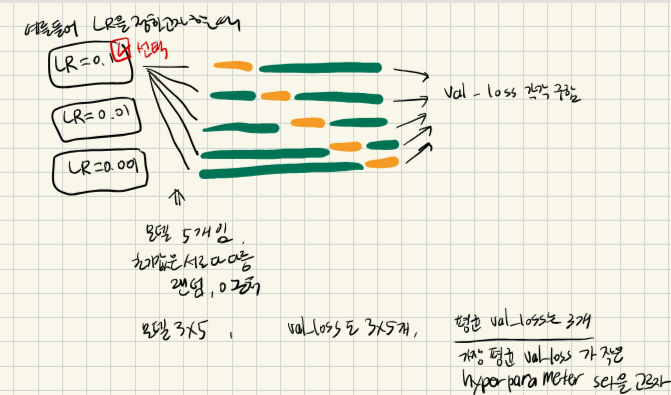 예를들어 LR을 정한다고 하면
LR=0.1
선택
LR=0.01
LR=0.001
val_loss 각각 구함
모델 5개임.
초기값은 서로 다 다름
랜덤, 0 근처
모델 3x5,
val_loss도 3x5개,
평균 val_loss는 3개
가장 평균 val_loss가 작은
hyperparameter set을 고르자